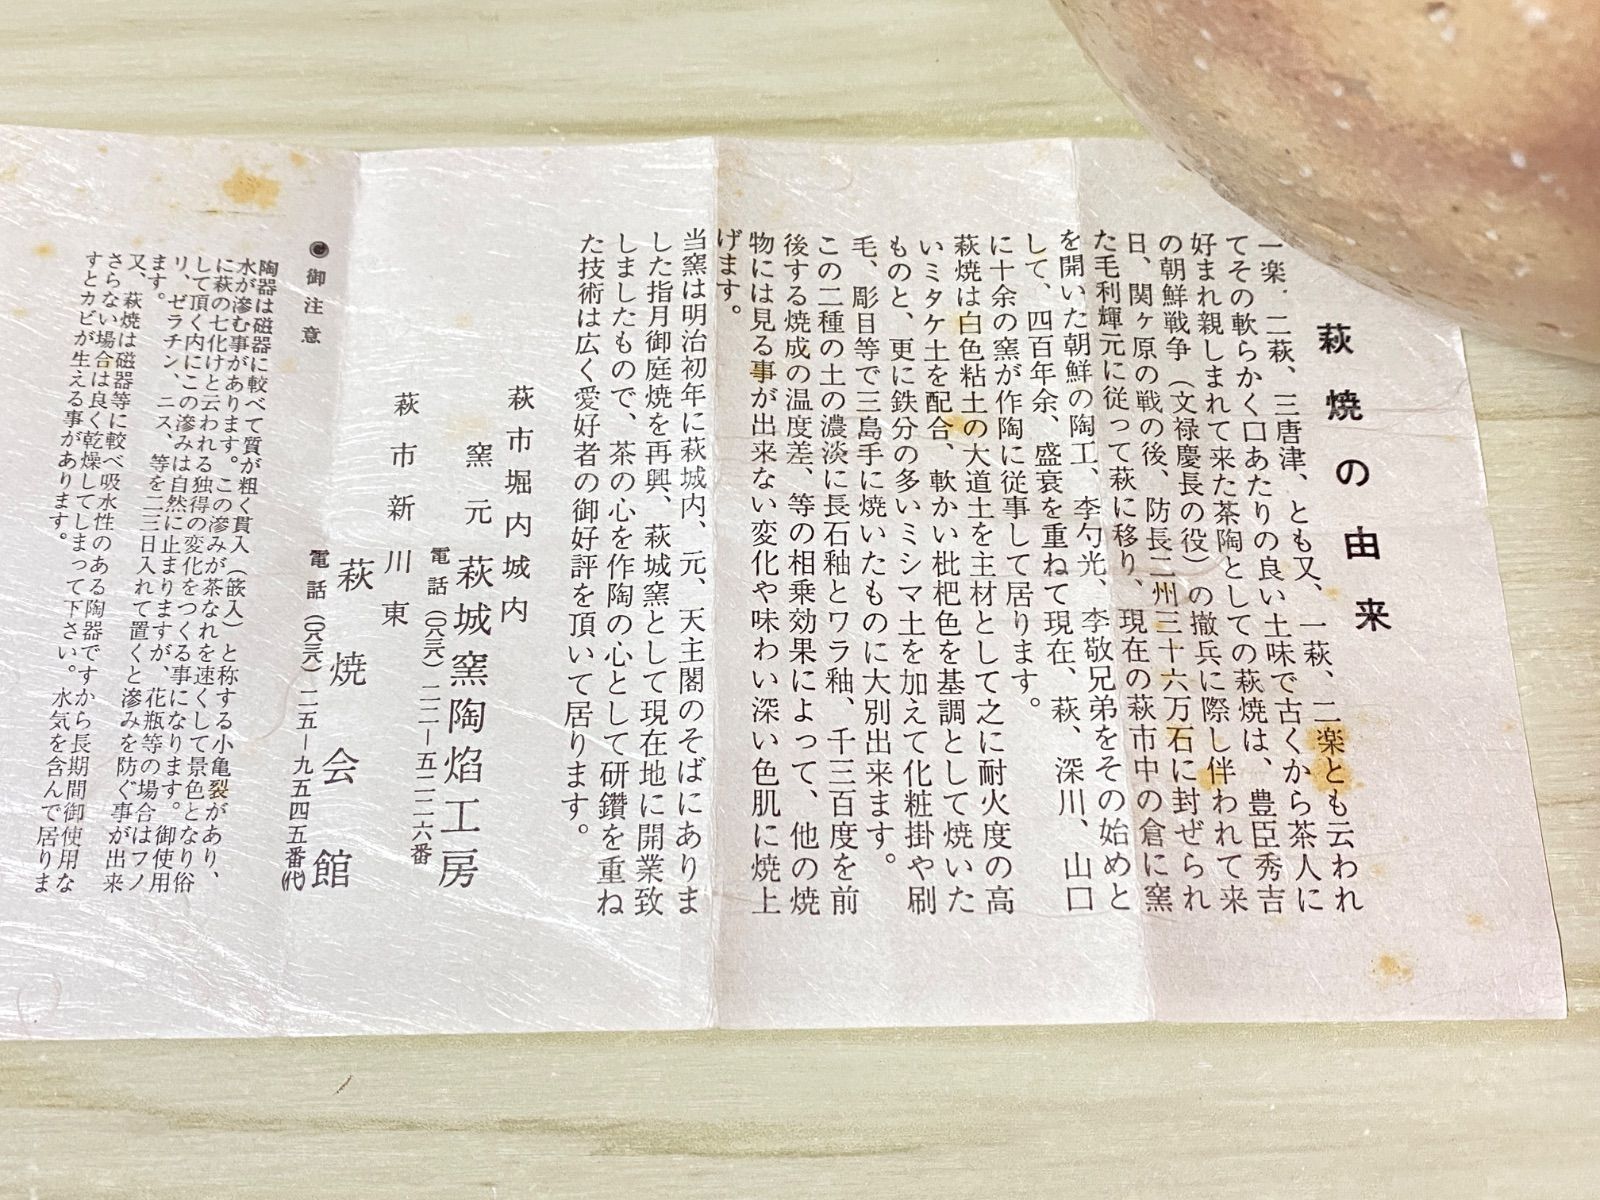 萩焼の由来
一楽、二萩、三唐津、とも又、一萩、二楽とも云われ
てその軟らかく口あたりの良い土味で古くから茶人に
好まれ親しまれて来た茶陶としての萩焼は、豊臣秀吉
の朝鮮戦争（文禄慶長の役）の撤兵に際し伴われて来
日、関ヶ原の戦の後、防長二州三十六万石に封ぜられ
た毛利輝元に従って萩に移り、現在の萩市中の倉に窯
を開いた朝鮮の陶工、李勺光、李敬兄弟をその始めと
して、四百年余、盛衰を重ねて現在、萩、深川、山口
に十余の窯が作陶に従事して居ります。
萩焼は白色粘土の大道土を主材として之に耐火度の高
いミタケ土を配合、軟かい枇杷色を基調として焼いた
ものと、更に鉄分の多いミシマ土を加えて化粧掛や刷
毛、彫目等で三島手に焼いたものに大別出来ます。
この二種の土の濃淡に長石釉とワラ釉、千三百度を前
後する焼成の温度差、等の相乗効果によって、他の焼
物には見る事が出来ない変化や味わい深い色肌に焼上
げます。
当窯は明治初年に萩城内、元、天主閣のそばにありま
した指月御庭焼を再興、萩城窯として現在地に開業致
しましたもので、茶の心を作陶の心として研鑽を重ね
た技術は広く愛好者の御好評を頂いて居ります。
萩市堀内城内
窯元 萩城窯陶焰工房
電話（〇八三八）二二－五二二六番
萩市新川東
萩焼会館
電話（〇八三八）二五－九五四五番(代)
◉御注意
陶器は磁器に較べて質が粗く貫入（嵌入）と称する小亀裂があり、
水が滲む事があります。この滲みが茶なれを速くして景色となり俗
に萩の七化けと云われる独得の変化をつくる事になります。御使用
して頂く内にこの滲みは自然に止まりますが、花瓶等の場合はフノ
リ、ゼラチン、ニス、等を二三日入れて置くと滲みを防ぐ事が出来
ます。
又、萩焼は磁器等に較べ吸水性のある陶器ですから長期間御使用な
さらない場合は良く乾燥してしまって下さい。水気を含んで居りま
すとカビが生える事があります。